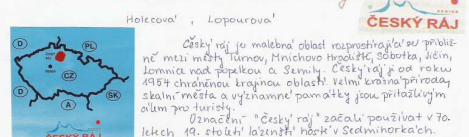 Holecová , Lopourová
ČESKÝ RÁJ
Český ráj je malebná oblast rozprostírající se přibliž-
ně mezi městy Turnov, Mnichovo Hradiště, Sobotka, Jičín,
Lomnice nad Popelkou a Semily. Český ráj je od roku
1954 chráněnou krajinou oblastí. Velmi krásná příroda,
skalní města a významné památky jsou přitažlivým
cílem pro turisty.
Označení "Český ráj" začali používat v 70.
letech 19. století lázeňští hosté v Sedmihorkách
D
PL
CZ
D
SK
A
ČESKÝ RÁJ